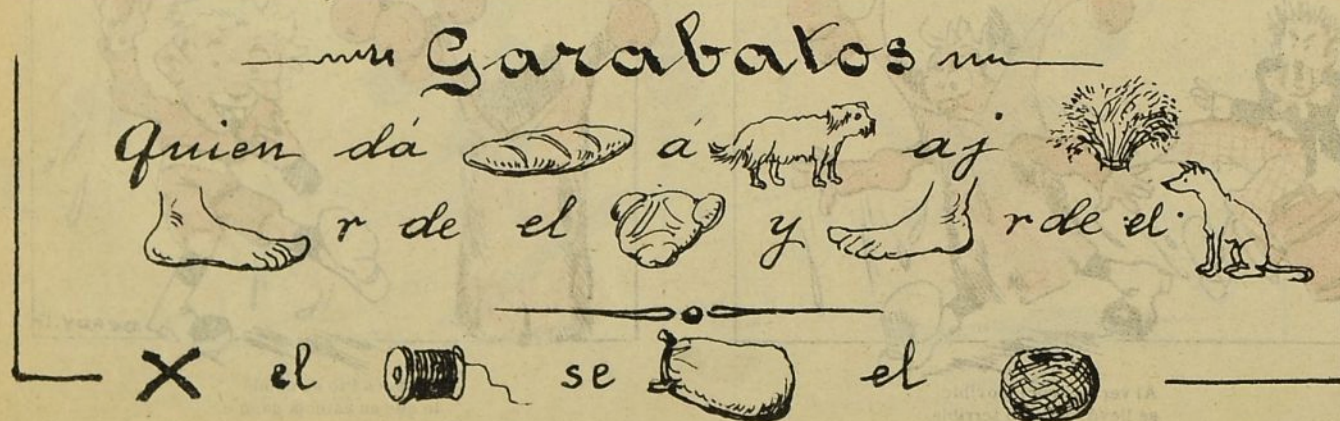 Garabatos
Quien dá á aj
r de el y r de el
X el se el